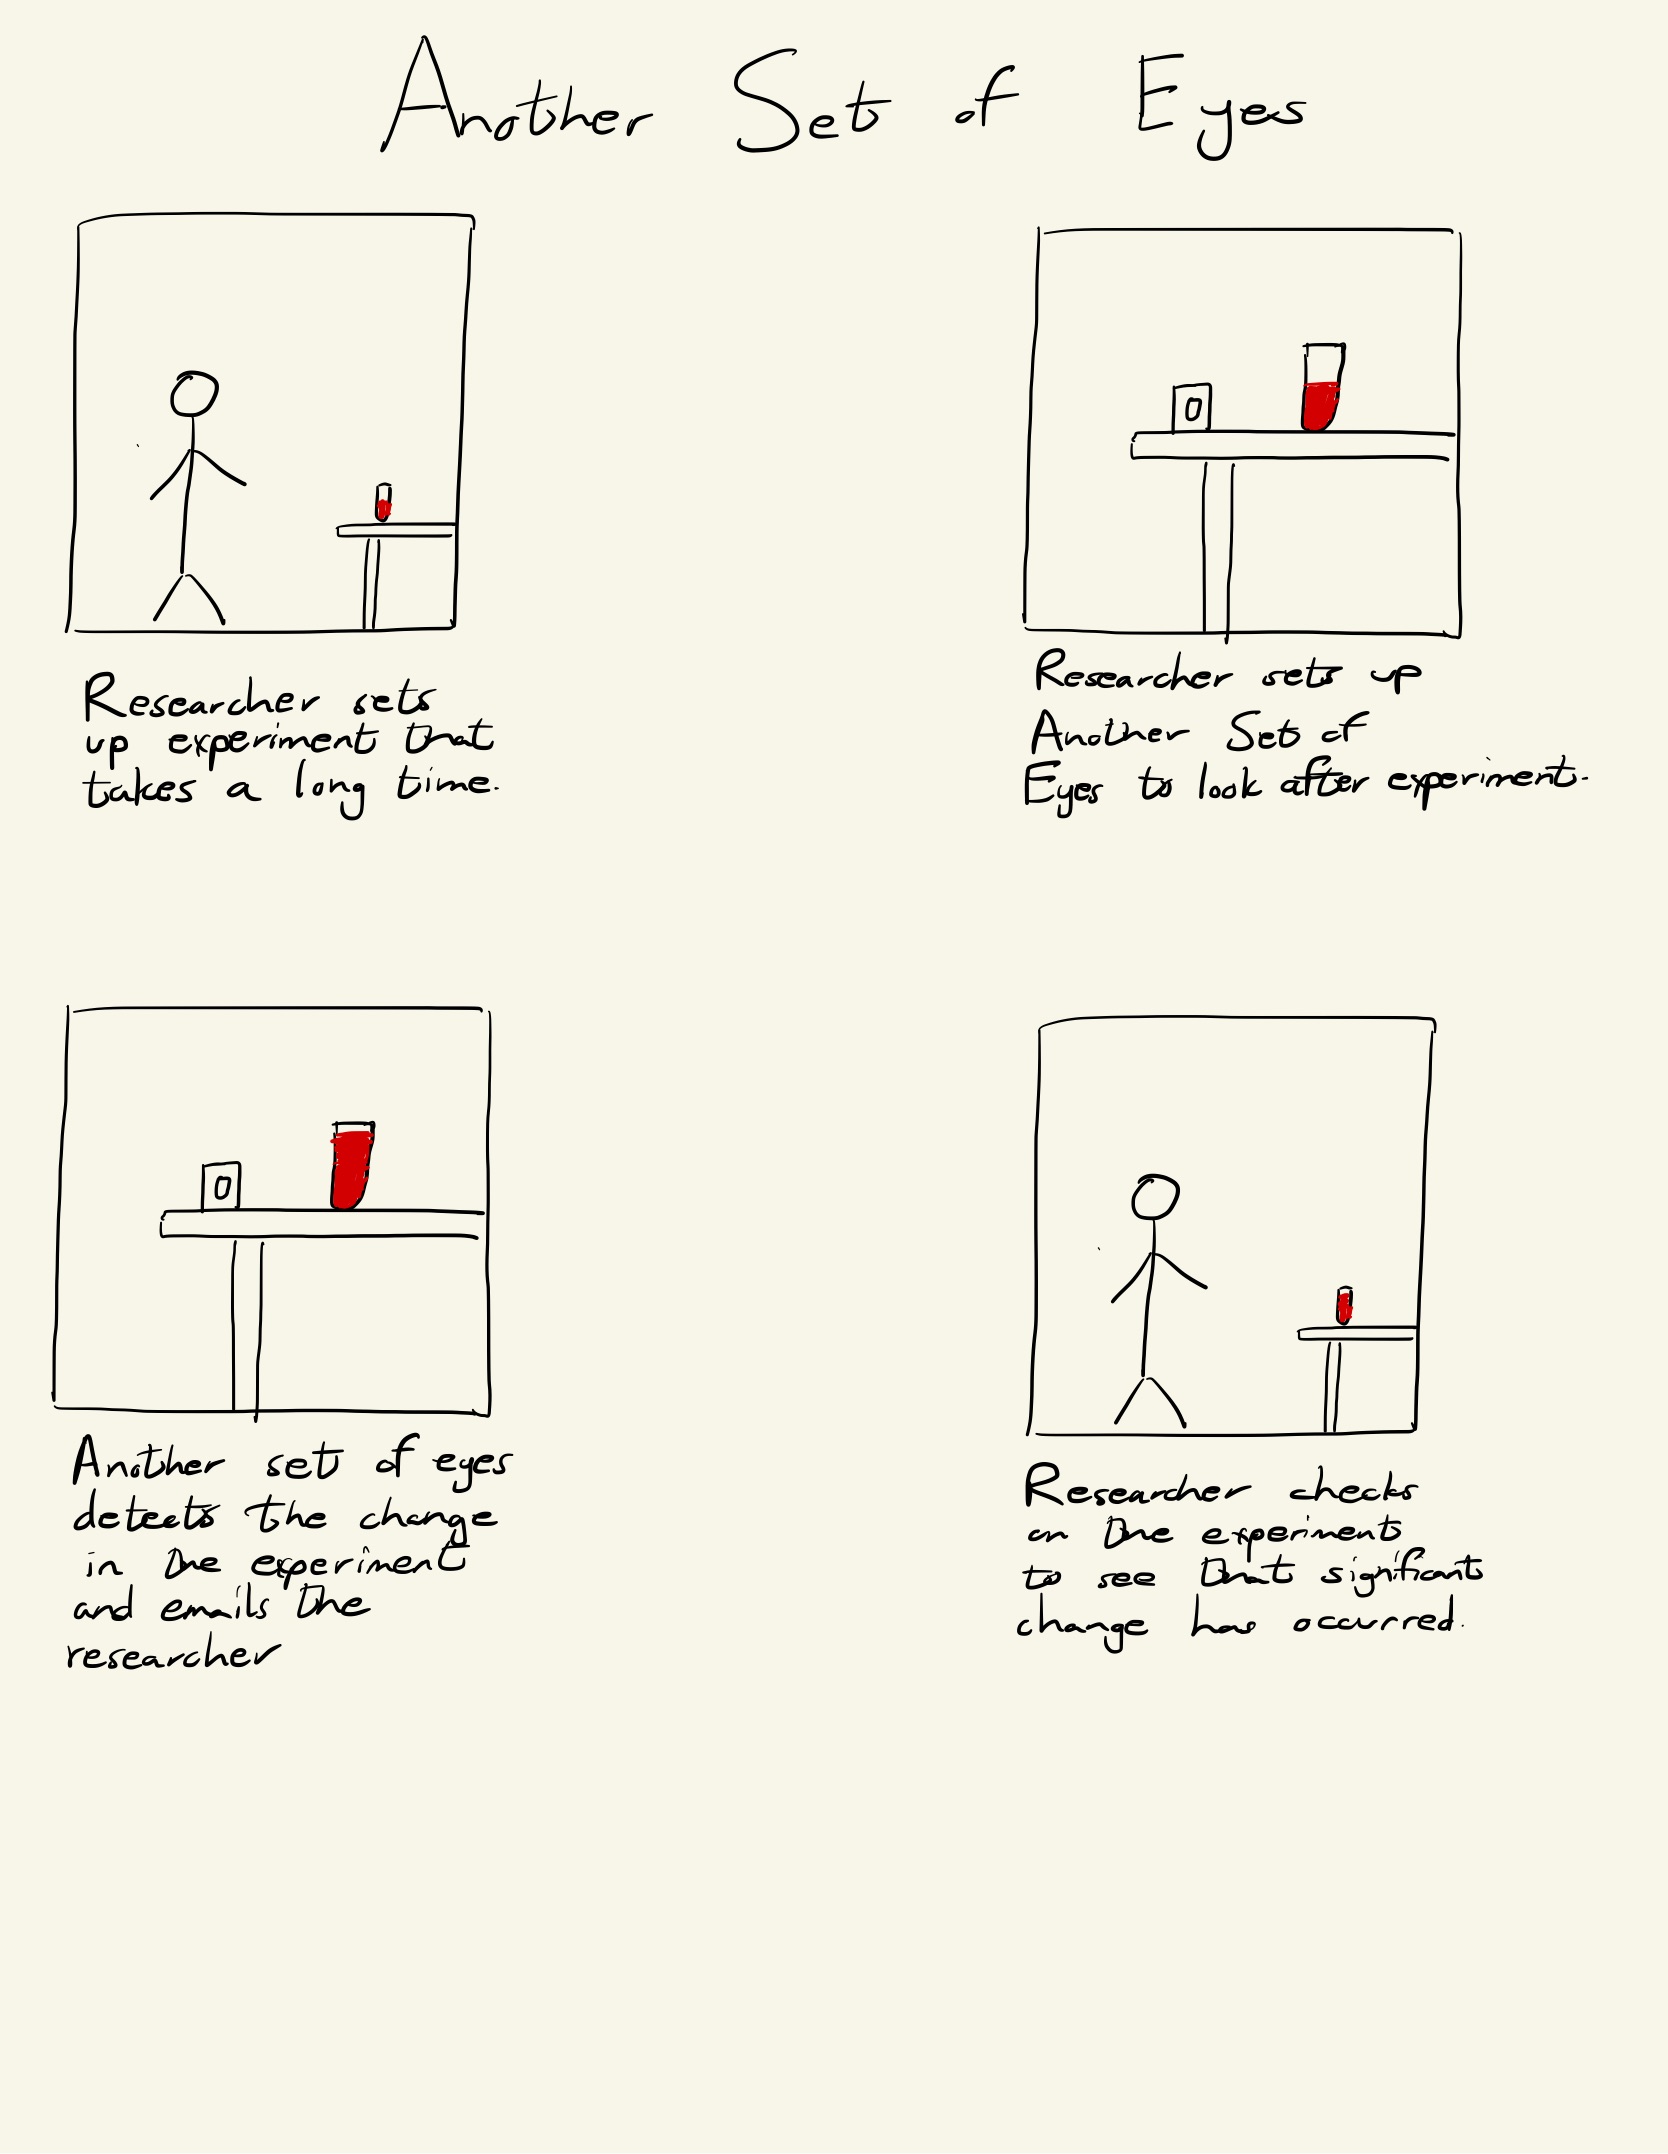 Another Set of Eyes
Researcher sets
up experiment that
takes a long time.
Researcher sets up
Another Set of
Eyes to look after experiment.
Another set of eyes
detects the change
in the experiment
and emails the
researcher
Researcher checks
on the experiment
to see that significant
change has occurred.